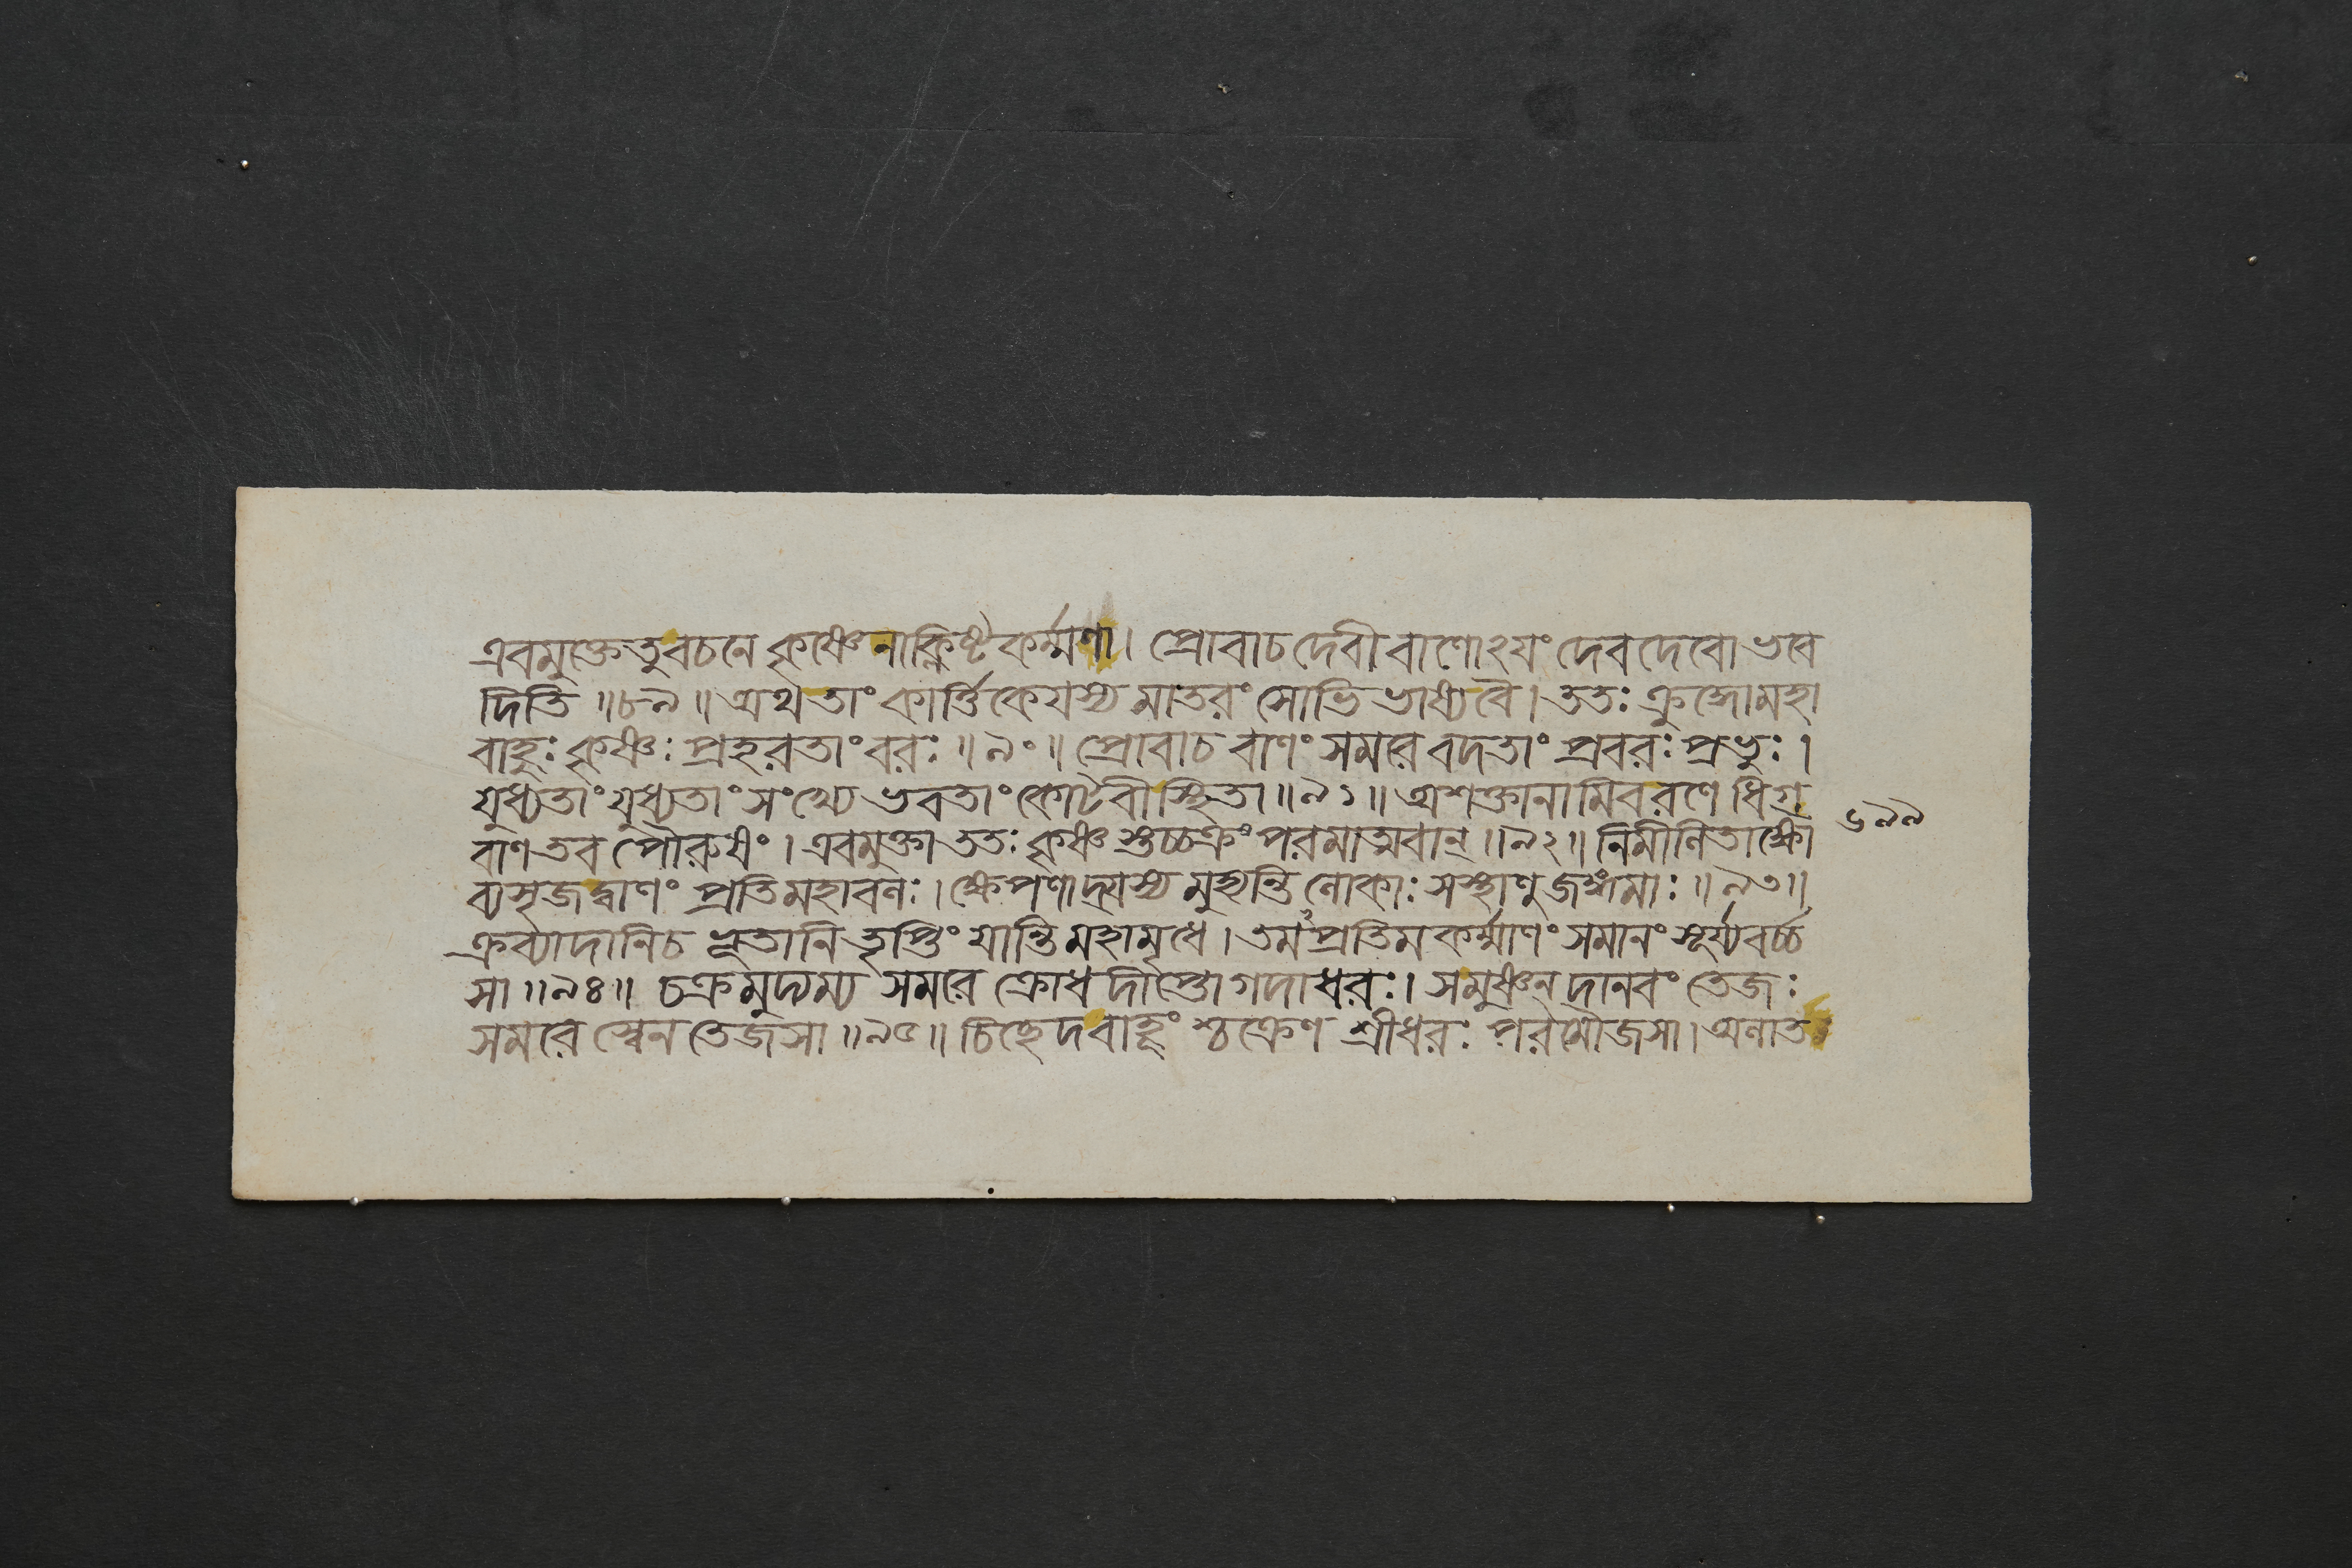 এবমুক্তেতুবচনে কৃষ্ণেনাক্লিষ্টকর্ম্মণা। প্রোবাচদেবীবাণোঽযং দেবদেবোভবে
দিতি ॥৮৯॥ অথতাং কার্ত্তিকেযস্য মাতরং সোভিভাষ্যবৈ। ততঃ ক্রুদ্ধোমহা
বাহুঃ কৃষ্ণঃ প্রহরতাং বরঃ ॥৯০॥ প্রোবাচ বাণং সমরে বদতাং প্রবরঃ প্রভুঃ।
যুধ্যতাং যুধ্যতাং সংখ্যে ভবতাং কোটবীস্থিতা ॥৯১॥ অশক্তানামিবরণে ধিগ্
বাণ তব পৌরুষং। এবমুক্তা ততঃ কৃষ্ণ স্তচ্চক্রং পরমাত্মবান্ ॥৯২॥ নিমীলিতাক্ষো
ব্যসৃজদ্বাণং প্রতিমহাবলঃ। ক্ষেপণাদ্যস্য মুহ্যন্তি লোকাঃ সস্থাণুজঙ্গমাঃ ॥৯৩॥
ক্রব্যাদানিচ ভূতানি তৃপ্তিং যান্তি মহামৃধে। তমপ্রতিমকর্ম্মাণং সমানং সূর্য্যবর্চ্চ
সা ॥৯৪॥ চক্রমুদ্যম্য সমরে ক্রোধদীপ্তো গদাধরঃ। সমুষ্ণন্ দানবং তেজঃ
সমরে স্বেন তেজসা ॥৯৫॥ চিচ্ছেদবাহূং শ্চক্রেণ শ্রীধরঃ পরমৌজসা। অলাত
৬৯৯